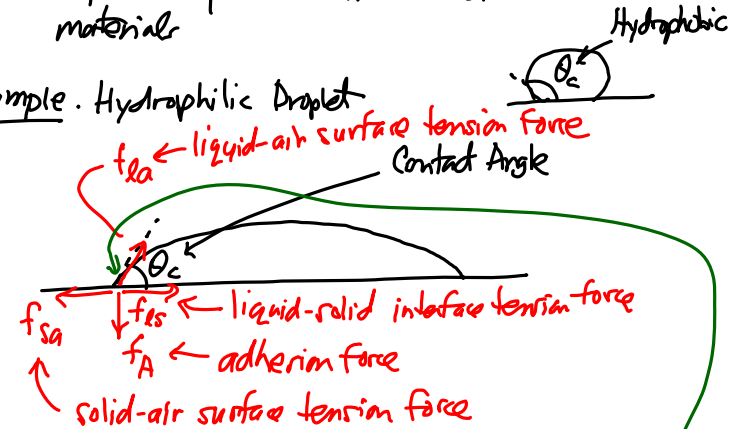 materials
Hydrophobic
θc
mple. Hydrophilic Droplet
fla ← liquid-air surface tension force
Contact Angle
θc
fsa
fls ← liquid-solid interface tension force
fA ← adhesion force
solid-air surface tension force